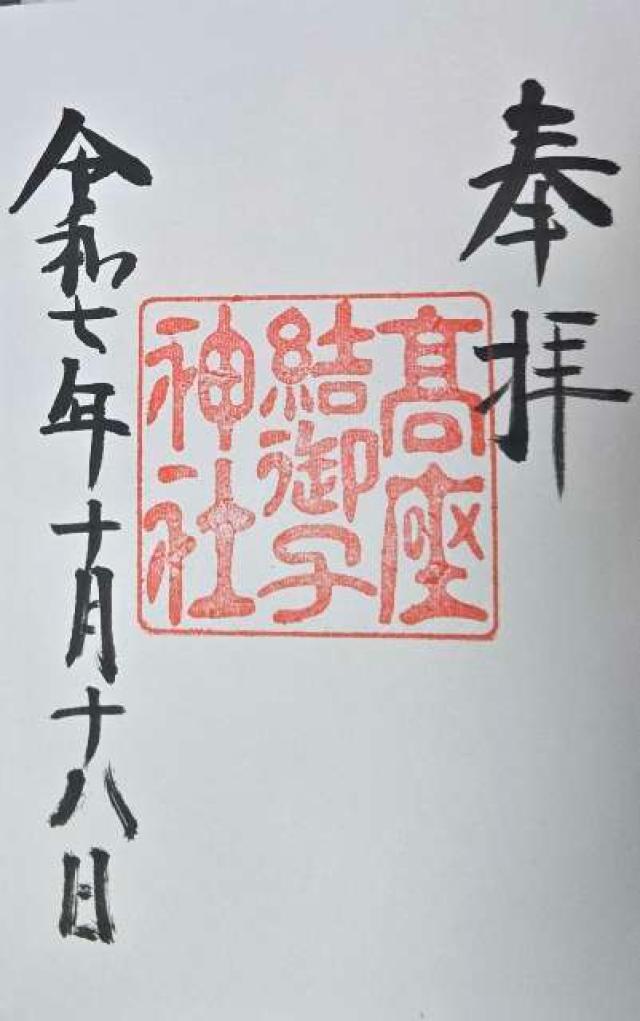 奉拝
髙座
結御子
神社
令和七年十月十八日